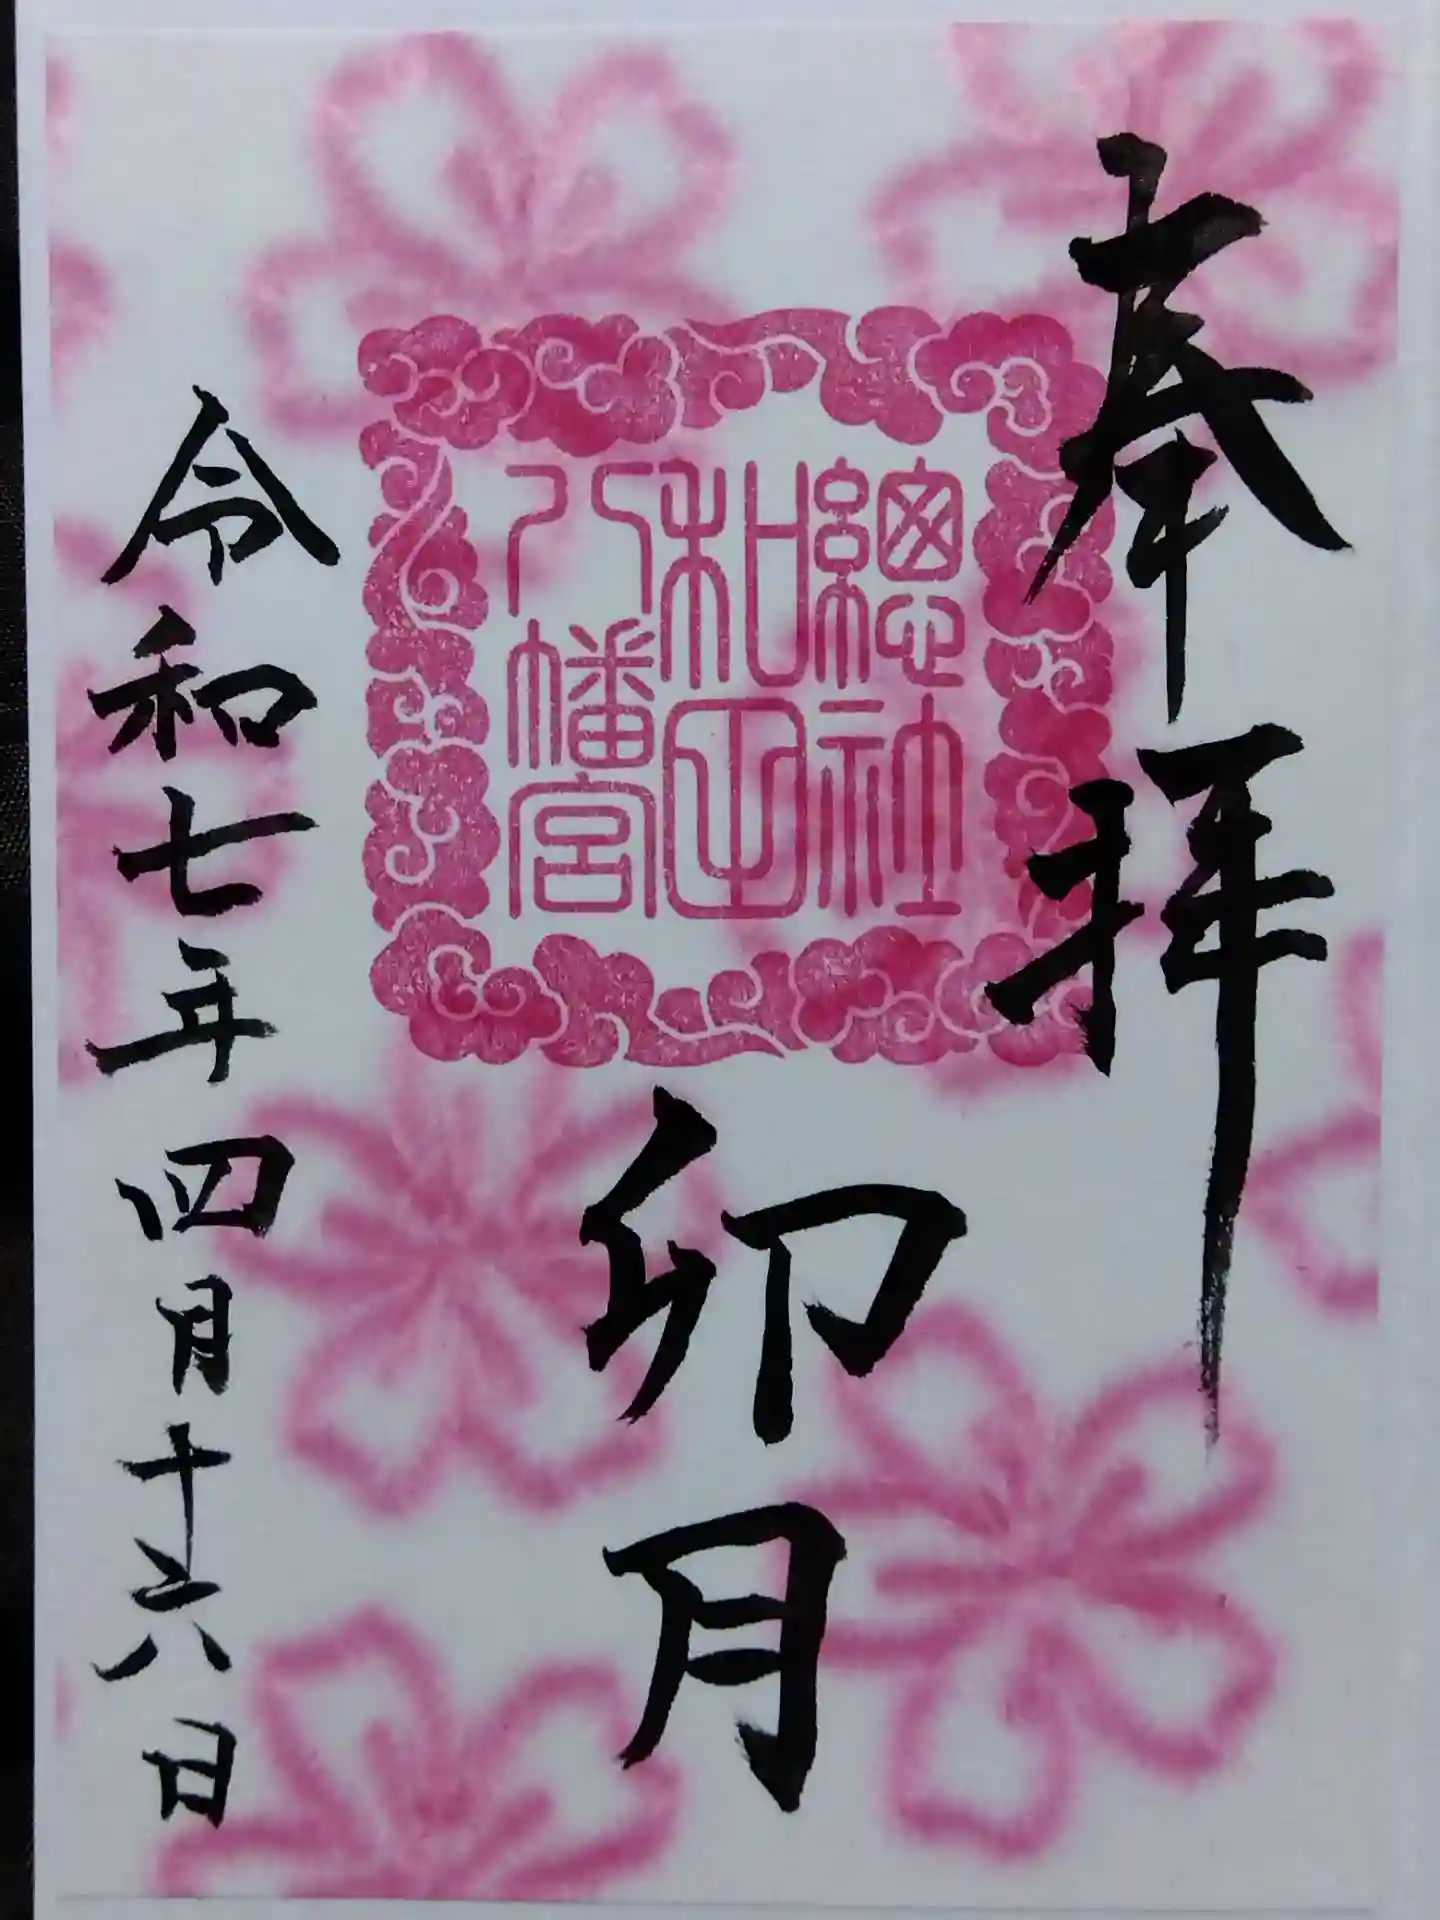 奉拝
總社
和田
八幡宮
卯月
令和七年四月十六日